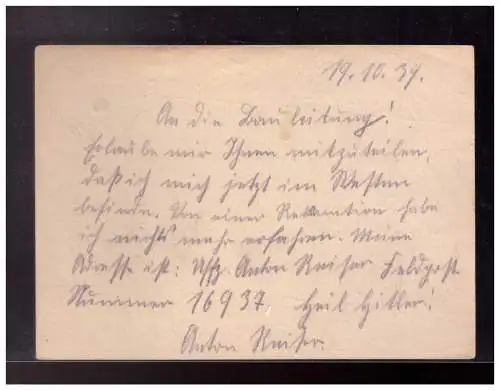 19.10.39.
An die Bauleitung!
Erlaube mir Ihnen mitzuteilen,
daß ich mich jetzt im Westen
befinde. Von einer Reklamation habe
ich nichts mehr erfahren. Meine
Adresse ist: Uffz. Anton Kaiser Feldpost
Nummer 16937. Heil Hitler!
Anton Kaiser.